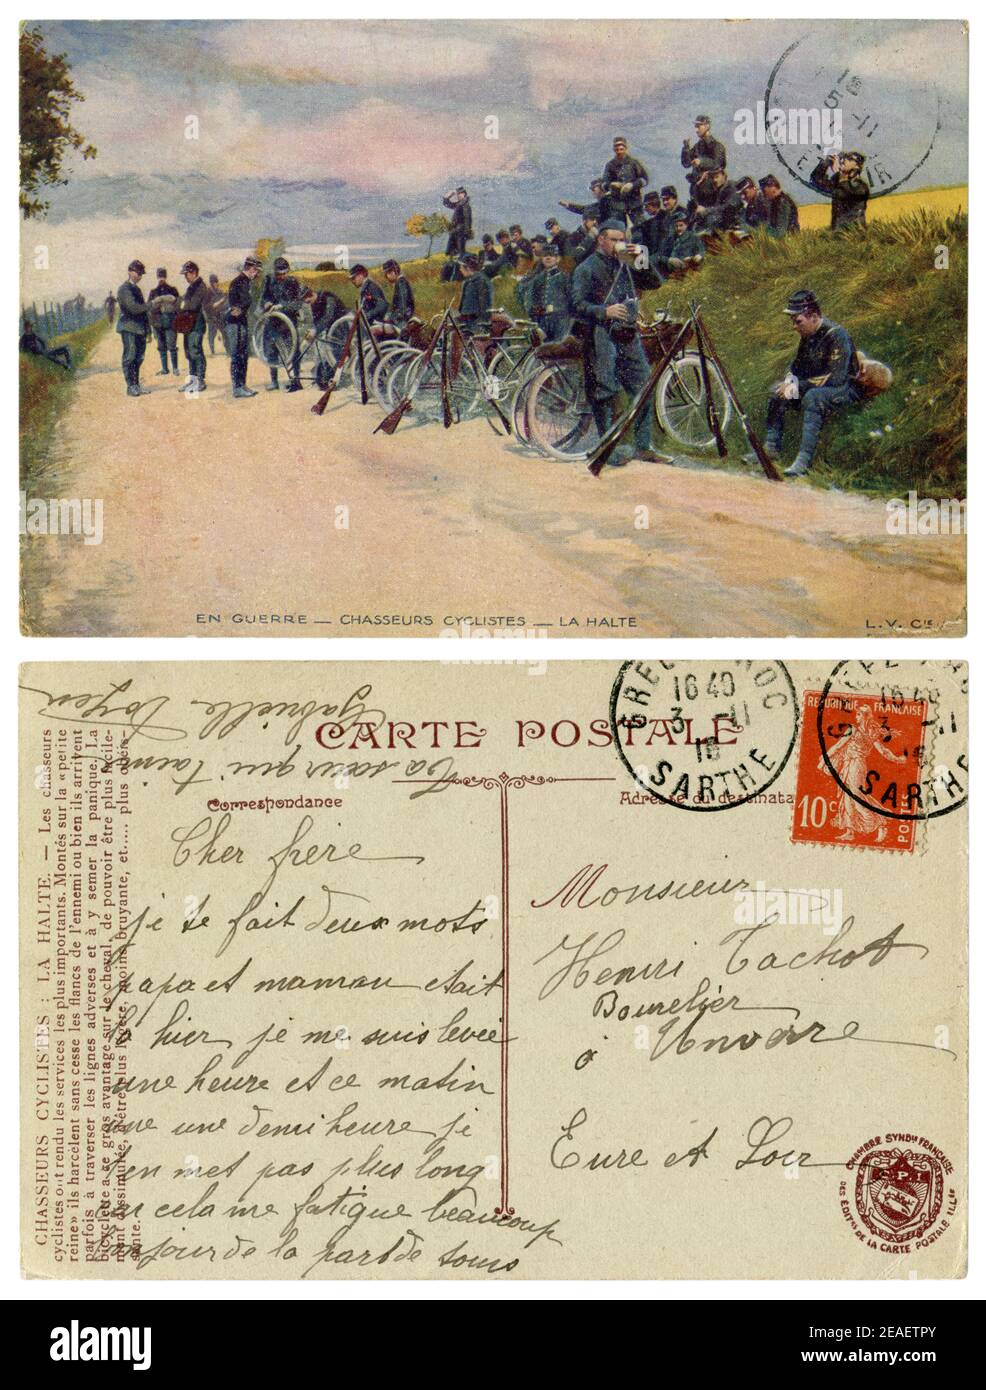 EN GUERRE — CHASSEURS CYCLISTES — LA HALTE
L. V. Cie
CARTE POSTALE
Correspondance
Adresse du destinata
16 40
3 -11
SARTHE
REPUBLIQUE FRANÇAISE
10c
POSTES
16 40
3 -11
SARTHE
Cher frère
je te fait deux mots
papa et maman etait
la hier je me suis levée
une heure et ce matin
une demi heure je
t'en met pas plus long
cela me fatigue beaucoup
bonjour de la part de tous
Ta soeur qui t'aime
Gabrielle
Monsieur
Henri Tachot
Bourelier
à Unverre
Eure et Loir
CHASSEURS CYCLISTES : LA HALTE. — Les chasseurs
cyclistes ont rendu les services les plus importants. Montés sur la « petite
reine » ils harcèlent sans cesse les flancs de l'ennemi ou bien ils arrivent
parfois à traverser les lignes adverses et à y semer la panique. La
bicyclette a ce gros avantage sur le cheval, de pouvoir être plus facile-
ment dissimulée, d'être plus légère, moins bruyante, et..... plus obéis-
sante.
CHAMBRE SYNDle FRANÇAISE
DES ÉDITrs DE LA CARTE POSTALE ILLée
alamy
alamy
Image ID: 2EAETPY
www.alamy.com